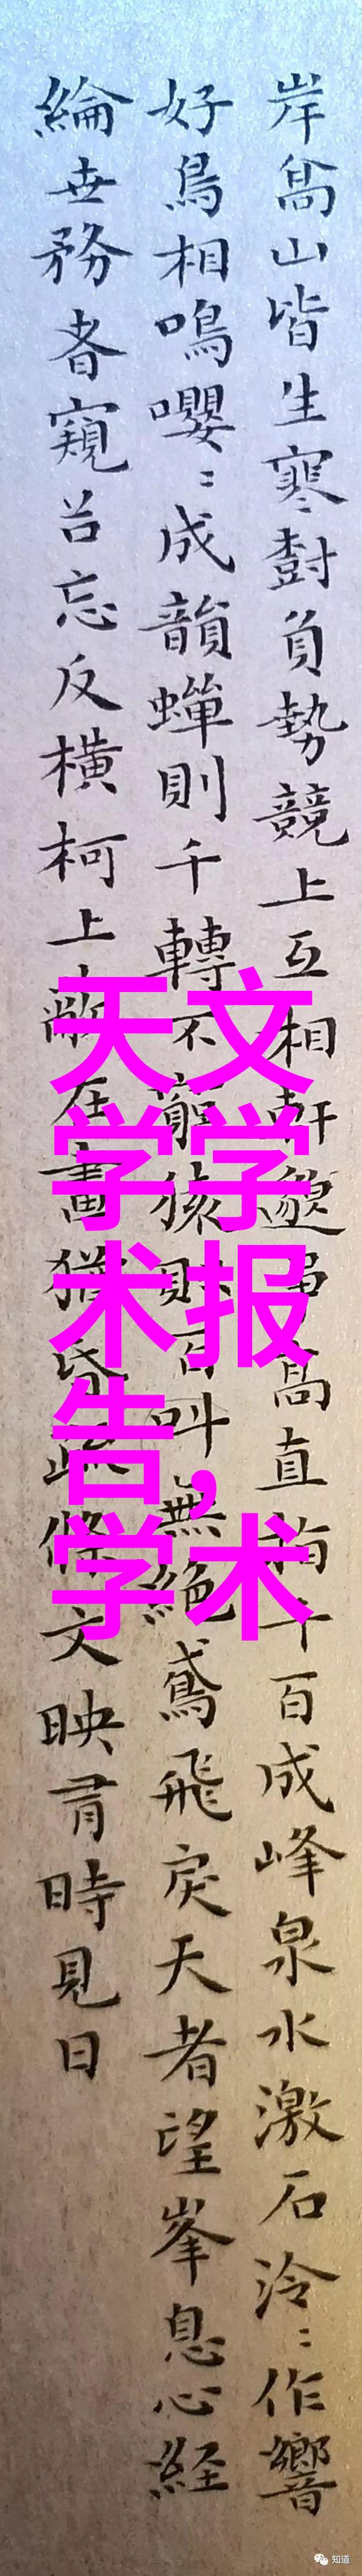 岸高山皆生寒𣗳負勢競上互相軒邈爭高直指千百成峰泉水激石泠〻作響
好鳥相鳴嚶〻成韻蟬則千轉不窮猿則百叫無絕鳶飛戾天者望峯息心経
綸世務者窺谷忘反橫柯上蔽在晝猶昏疏條文映有時見日
天文
学学
术报
告，
学术
知道